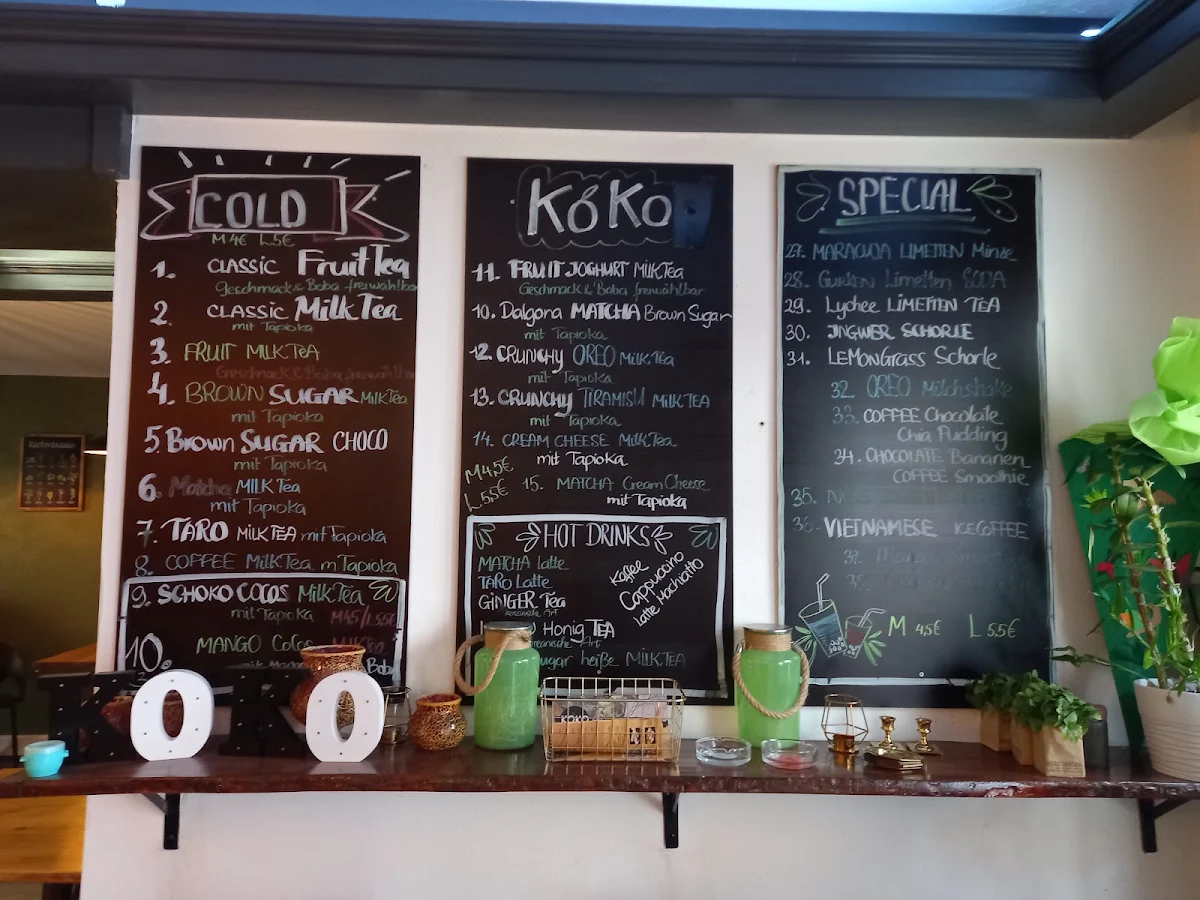 COLD
M 4€ L 5€
1. CLASSIC Fruit Tea
Geschmack & Boba freiwählbar
2. CLASSIC Milk Tea
mit Tapioka
3. FRUIT MILK TEA
Geschmack & Boba freiwählbar
4. BROWN SUGAR MILK TEA
mit Tapioka
5. Brown SUGAR CHOCO
mit Tapioka
6. Matcha MILK Tea
mit Tapioka
7. TARO MILK TEA mit Tapioka
8. COFFEE Milk Tea m Tapioka
9. SCHOKO COCOS Milk Tea
mit Tapioka M 4,5/L 5,5€
10. MANGO Cocos
Boba
KóKo
11. FRUIT JOGHURT MILK Tea
Geschmack & Boba freiwählbar
10. Dalgona MATCHA Brown Sugar
mit Tapioka
12. CRUNCHY OREO Milk Tea
mit Tapioka
13. CRUNCHY TIRAMISU MILK TEA
mit Tapioka
14. CREAM CHEESE Milk Tea
mit Tapioka
M 4,5€
L 5,5€
15. MATCHA Cream Cheese
mit Tapioka
HOT DRINKS
MATCHA latte
TARO Latte
GINGER Tea
Honig TEA
heiße MILK TEA
Kaffee
Cappuccino
latte Machiatto
SPECIAL
27. MARACUJA LIMETTEN Minze
28. Gurken Limetten SODA
29. Lychee LIMETTEN TEA
30. INGWER SCHORLE
31. LEMONGrass Schorle
32. OREO Milchshake
33. COFFEE Chocolate
Chia Pudding
34. CHOCOLATE Bananen
COFFEE Smoothie
35.
36. VIETNAMESE ICE COFFEE
M 4,5€ L 5,5€
KOKO
KOKO